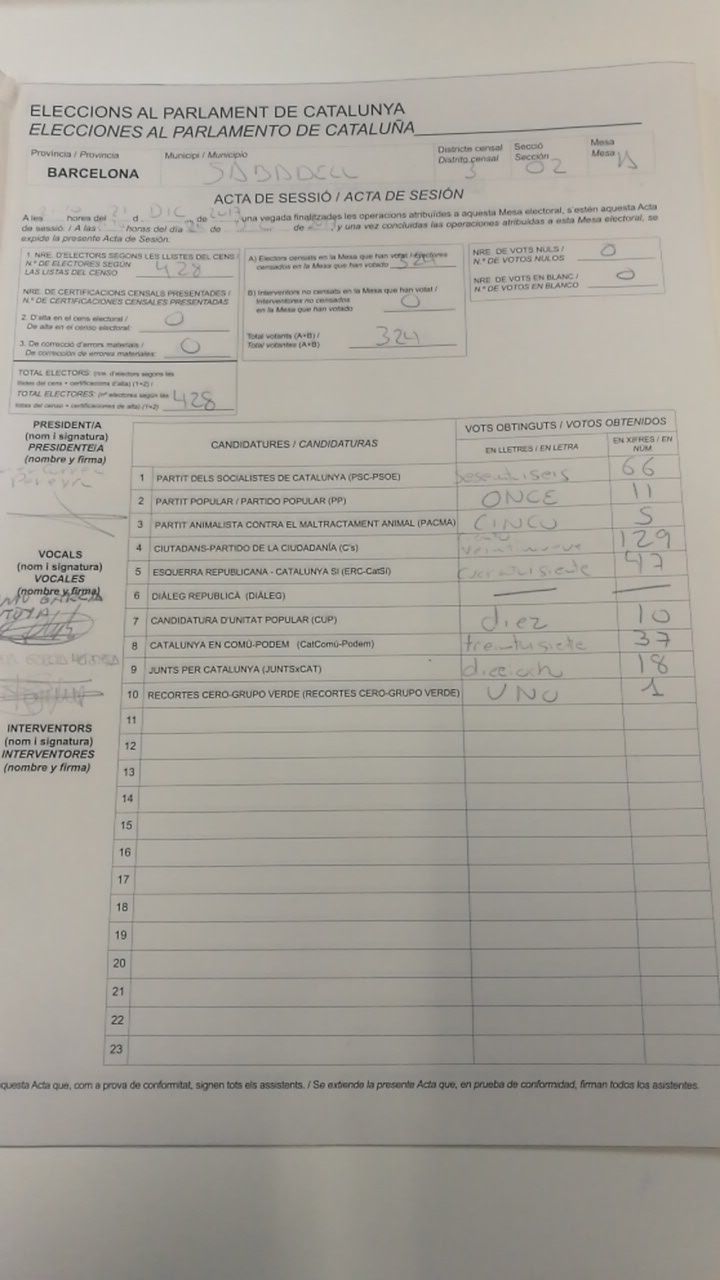 ELECCIONS AL PARLAMENT DE CATALUNYA
ELECCIONES AL PARLAMENTO DE CATALUÑA
Provincia / Provincia Municipi / Municipio Districte censal Secció Mesa
Distrito censal Sección Mesa
BARCELONA SABADELL 3 02
ACTA DE SESSIÓ / ACTA DE SESIÓN
A les hores del 21 d DIC de 2017, una vegada finalitzades les operacions atribuïdes a aquesta Mesa electoral, s'estén aquesta Acta
de sessió. / A las horas del día de de y una vez concluidas las operaciones atribuidas a esta Mesa electoral, se
expide la presente Acta de Sesión.
1. NRE. D'ELECTORS SEGONS LES LLISTES DEL CENS /
N.º DE ELECTORES SEGÚN
LAS LISTAS DEL CENSO 428
NRE. DE CERTIFICACIONS CENSALS PRESENTADES /
N.º DE CERTIFICACIONES CENSALES PRESENTADAS
2. D'alta en el cens electoral /
De alta en el censo electoral: 0
3. De correcció d'errors materials /
De corrección de errores materiales: 0
TOTAL ELECTORS: (nre. d'electors segons les
llistes del cens + certificacions d'alta) (1+2) /
TOTAL ELECTORES: (nº electores según las
listas del censo + certificaciones de alta) (1+2) 428
A) Electors censats en la Mesa que han votat / Electores
censados en la Mesa que han votado 324
B) Interventors no censats en la Mesa que han votat /
Interventores no censados
en la Mesa que han votado 0
Total votants (A+B) /
Total votantes (A+B) 324
NRE. DE VOTS NULS /
N.º DE VOTOS NULOS 0
NRE. DE VOTS EN BLANC /
N.º DE VOTOS EN BLANCO 0
PRESIDENT/A
(nom i signatura)
PRESIDENTE/A
(nombre y firma)
VOCALS
(nom i signatura)
VOCALES
(nombre y firma)
INTERVENTORS
(nom i signatura)
INTERVENTORES
(nombre y firma)
CANDIDATURES / CANDIDATURAS VOTS OBTINGUTS / VOTOS OBTENIDOS
EN LLETRES / EN LETRA EN XIFRES / EN NÚM.
1 PARTIT DELS SOCIALISTES DE CATALUNYA (PSC-PSOE) 66
2 PARTIT POPULAR / PARTIDO POPULAR (PP) ONCE 11
3 PARTIT ANIMALISTA CONTRA EL MALTRACTAMENT ANIMAL (PACMA) CINCO 5
4 CIUTADANS-PARTIDO DE LA CIUDADANÍA (C's) ciento veintinueve 129
5 ESQUERRA REPUBLICANA - CATALUNYA SI (ERC-CatSí) 47
6 DIÀLEG REPUBLICÀ (DIÀLEG) — —
7 CANDIDATURA D'UNITAT POPULAR (CUP) diez 10
8 CATALUNYA EN COMÚ-PODEM (CatComú-Podem) 37
9 JUNTS PER CATALUNYA (JUNTSxCAT) 18
10 RECORTES CERO-GRUPO VERDE (RECORTES CERO-GRUPO VERDE) UNO 1
11
12
13
14
15
16
17
18
19
20
21
22
23
questa Acta que, com a prova de conformitat, signen tots els assistents. / Se extiende la presente Acta que, en prueba de conformidad, firman todos los asistentes.